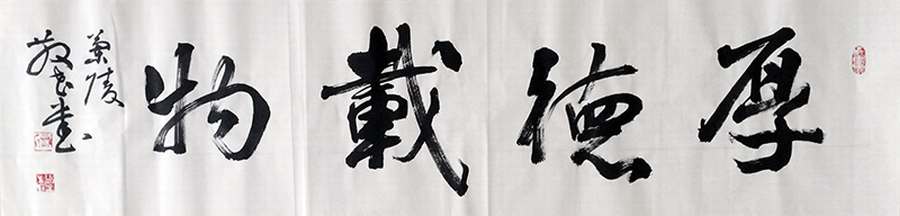 厚德載物
蘭陵